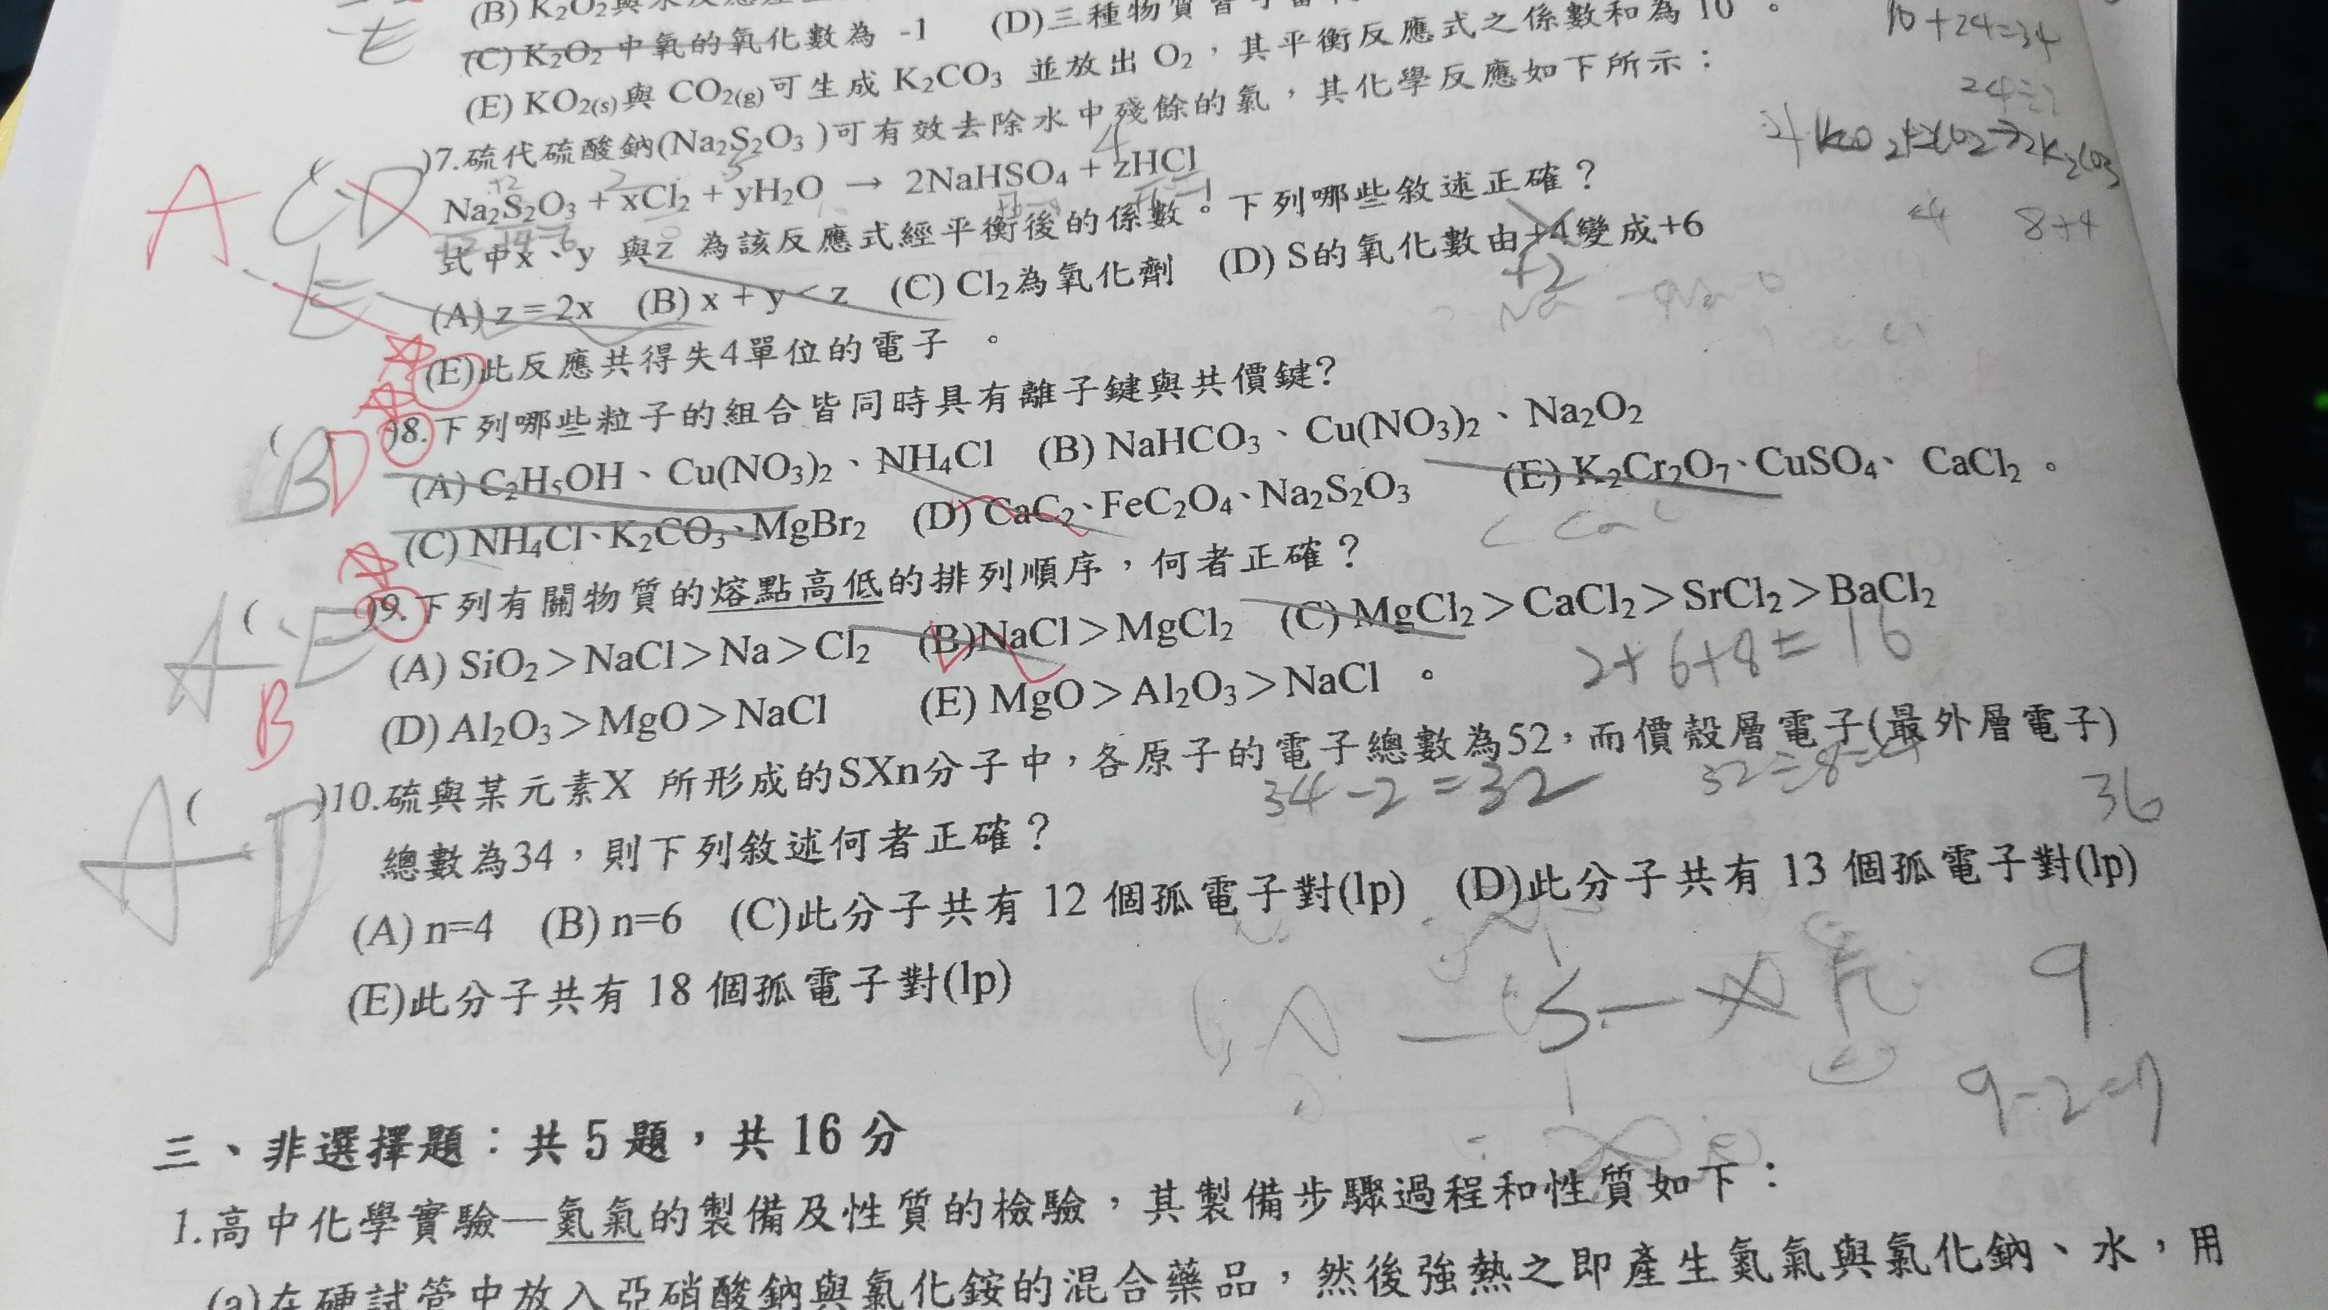 (B) K₂O₂與水反應產生
(C) K₂O₂ 中氧的氧化數為 -1 (D)三種物質皆可當
(E) KO₂(s)與 CO₂(g)可生成 K₂CO₃ 並放出 O₂，其平衡反應式之係數和為 10 。
)7.硫代硫酸鈉(Na₂S₂O₃ )可有效去除水中殘餘的氯，其化學反應如下所示：
Na₂S₂O₃ + xCl₂ + yH₂O → 2NaHSO₄ + zHCl
式中x、y 與z 為該反應式經平衡後的係數。下列哪些敘述正確？
(A) z = 2x (B) x + y < z (C) Cl₂為氧化劑 (D) S的氧化數由+4變成+6
+2
(E)此反應共得失4單位的電子 。
( )8.下列哪些粒子的組合皆同時具有離子鍵與共價鍵?
(A) C₂H₅OH、Cu(NO₃)₂、NH₄Cl (B) NaHCO₃、Cu(NO₃)₂、Na₂O₂
(C) NH₄Cl、K₂CO₃、MgBr₂ (D) CaC₂、FeC₂O₄、Na₂S₂O₃ (E) K₂Cr₂O₇、CuSO₄、CaCl₂ 。
( )9.下列有關物質的熔點高低的排列順序，何者正確？
(A) SiO₂＞NaCl＞Na＞Cl₂ (B)NaCl＞MgCl₂ (C) MgCl₂＞CaCl₂＞SrCl₂＞BaCl₂
(D) Al₂O₃＞MgO＞NaCl (E) MgO＞Al₂O₃＞NaCl 。
2+6+8=16
( )10.硫與某元素X 所形成的SXn分子中，各原子的電子總數為52，而價殼層電子(最外層電子)
34-2=32 32÷8=4
36
總數為34，則下列敘述何者正確？
(A) n=4 (B) n=6 (C)此分子共有 12 個孤電子對(lp) (D)此分子共有 13 個孤電子對(lp)
(E)此分子共有 18 個孤電子對(lp)
9
9-2=7
三、非選擇題：共5題，共16分
1.高中化學實驗—氮氣的製備及性質的檢驗，其製備步驟過程和性質如下：
(a)在硬試管中放入亞硝酸鈉與氯化銨的混合藥品，然後強熱之即產生氮氣與氯化鈉、水，用
A C D E
B D
A E
B
A D
10+24=34
8+4